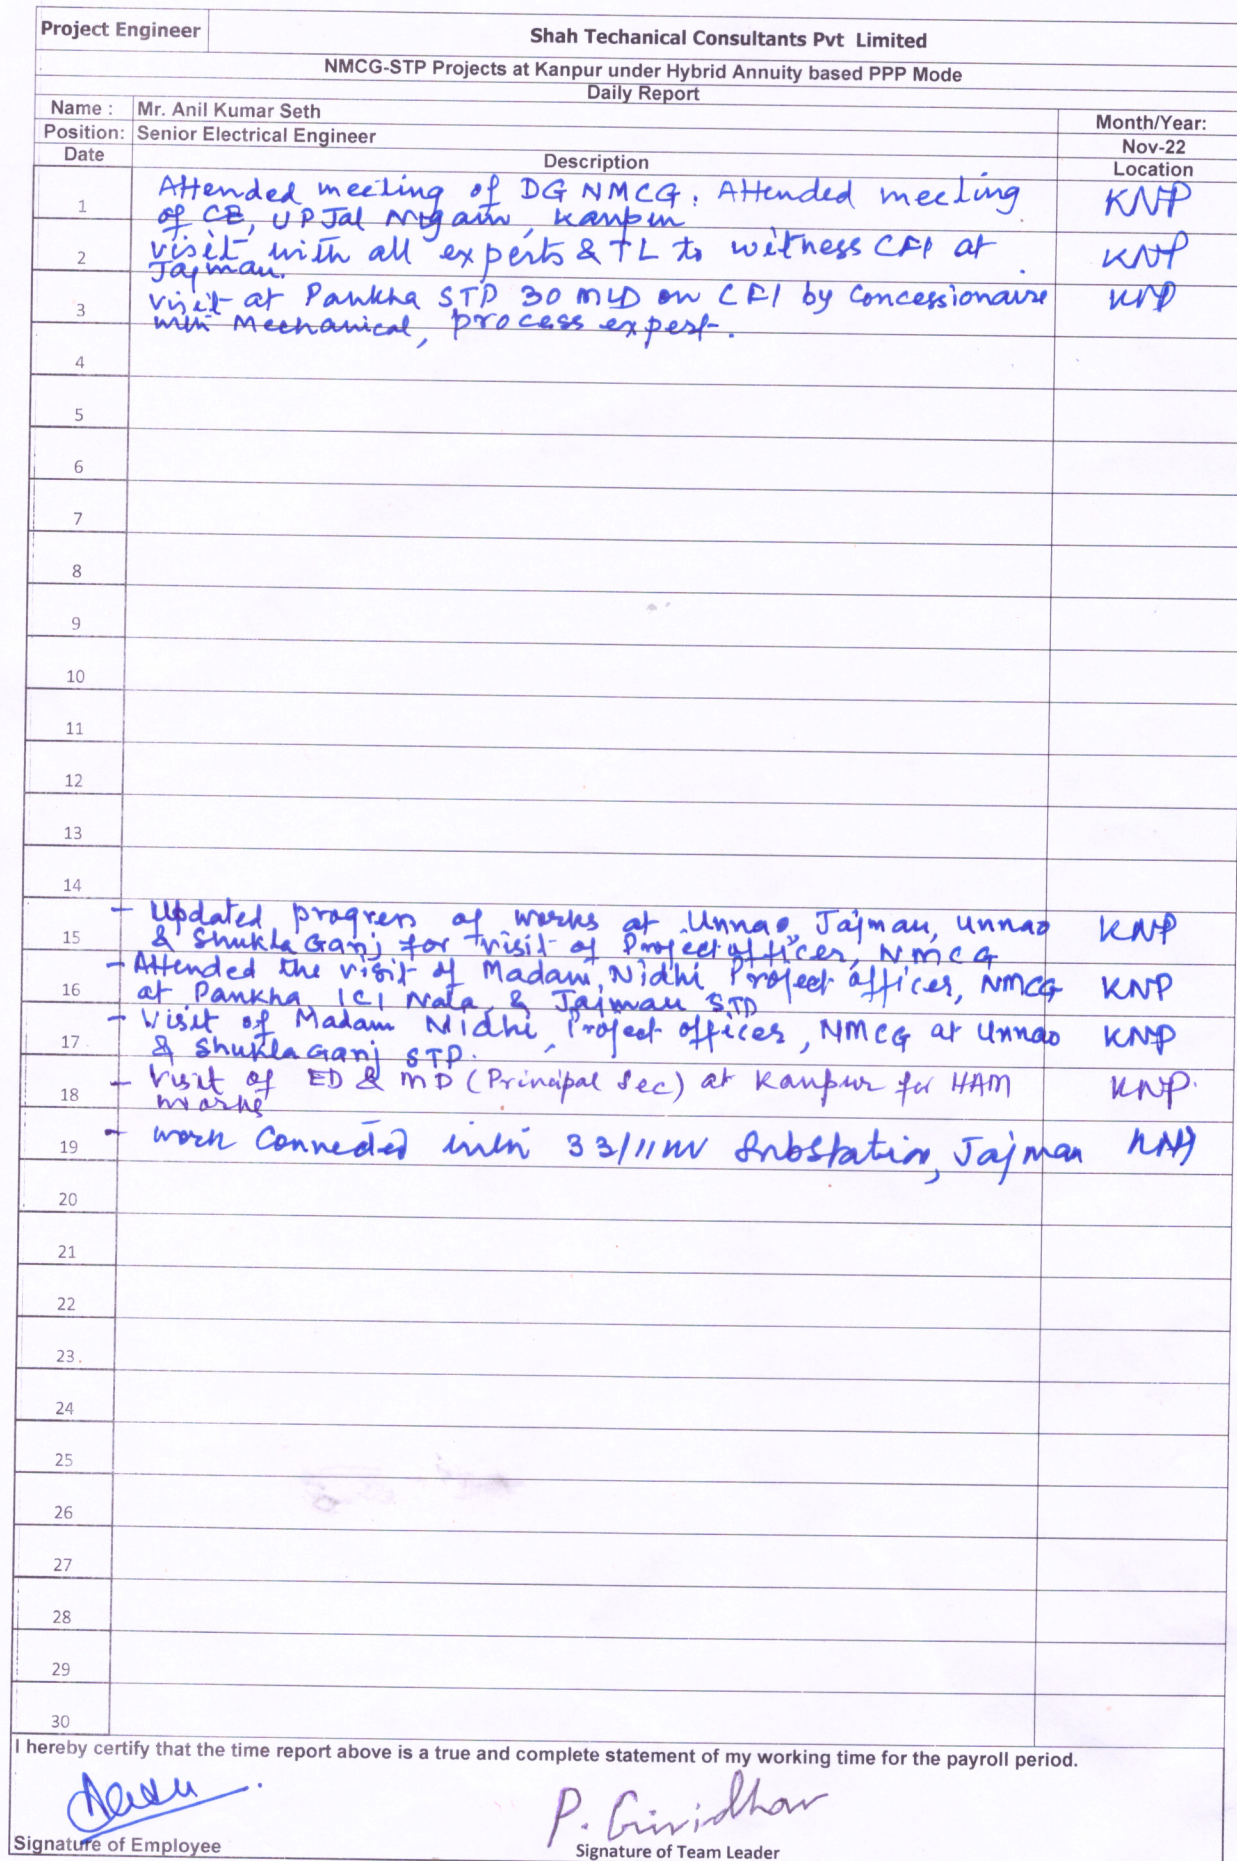 Project Engineer
Shah Techanical Consultants Pvt Limited
NMCG-STP Projects at Kanpur under Hybrid Annuity based PPP Mode
Daily Report
Name : Mr. Anil Kumar Seth
Month/Year:
Position: Senior Electrical Engineer
Nov-22
Date Description Location
1 Attended meeting of DG NMCG. Attended meeting KNP
of CE, UP Jal Nigam, Kanpur
2 visit with all experts & TL to witness CFI at KNP
Jajmau.
3 visit at Pankha STP 30 MLD on CFI by Concessionaire KNP
with Mechanical, process expert.
4
5
6
7
8
9
10
11
12
13
14
- Updated progress of works at Unnao, Jajmau, Unnao KNP
15 & Shukla Ganj for visit of Project officer, NMCG
- Attended the visit of Madam, Nidhi Project officer, NMCG KNP
16 at Pankha, ICI Nala & Jajmau STP
- Visit of Madam Nidhi, Project officer, NMCG at Unnao KNP
17 & Shukla Ganj STP.
- Visit of ED & MD (Principal Sec) at Kanpur for HAM KNP.
18 works
19 - work Connected with 33/11 KV Substation, Jajmau KNP
20
21
22
23
24
25
26
27
28
29
30
I hereby certify that the time report above is a true and complete statement of my working time for the payroll period.
P. Giridhar
Signature of Employee
Signature of Team Leader